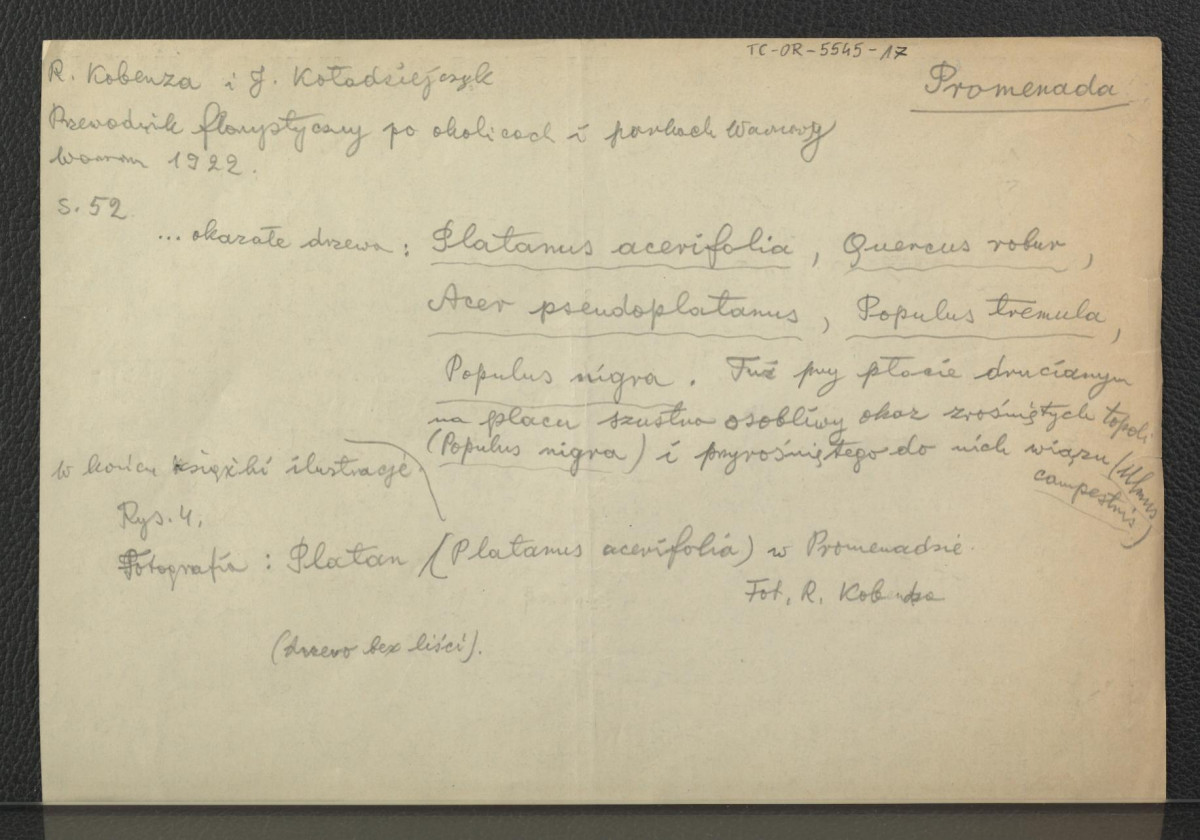 TC-OR-5545-17
R. Kobenza i J. Kołodziejczyk
Promenada
Przewodnik florystyczny po okolicach i parkach Warszawy
Warszawa 1922.
s. 52
... okazałe drzewa : Platanus acerifolia , Quercus robur ,
Acer pseudoplatanus , Populus tremula ,
Populus nigra . Tuż przy płocie drucianym
na placu szustra osobliwy okaz zrośniętych topoli
(Populus nigra) i przyrośniętego do nich wiązu (Ulmus
campestris)
w końcu książki ilustracje
Rys. 4.
Fotografia : Platan (Platanus acerifolia) w Promenadzie.
Fot. R. Kobendza
(drzewo bez liści).